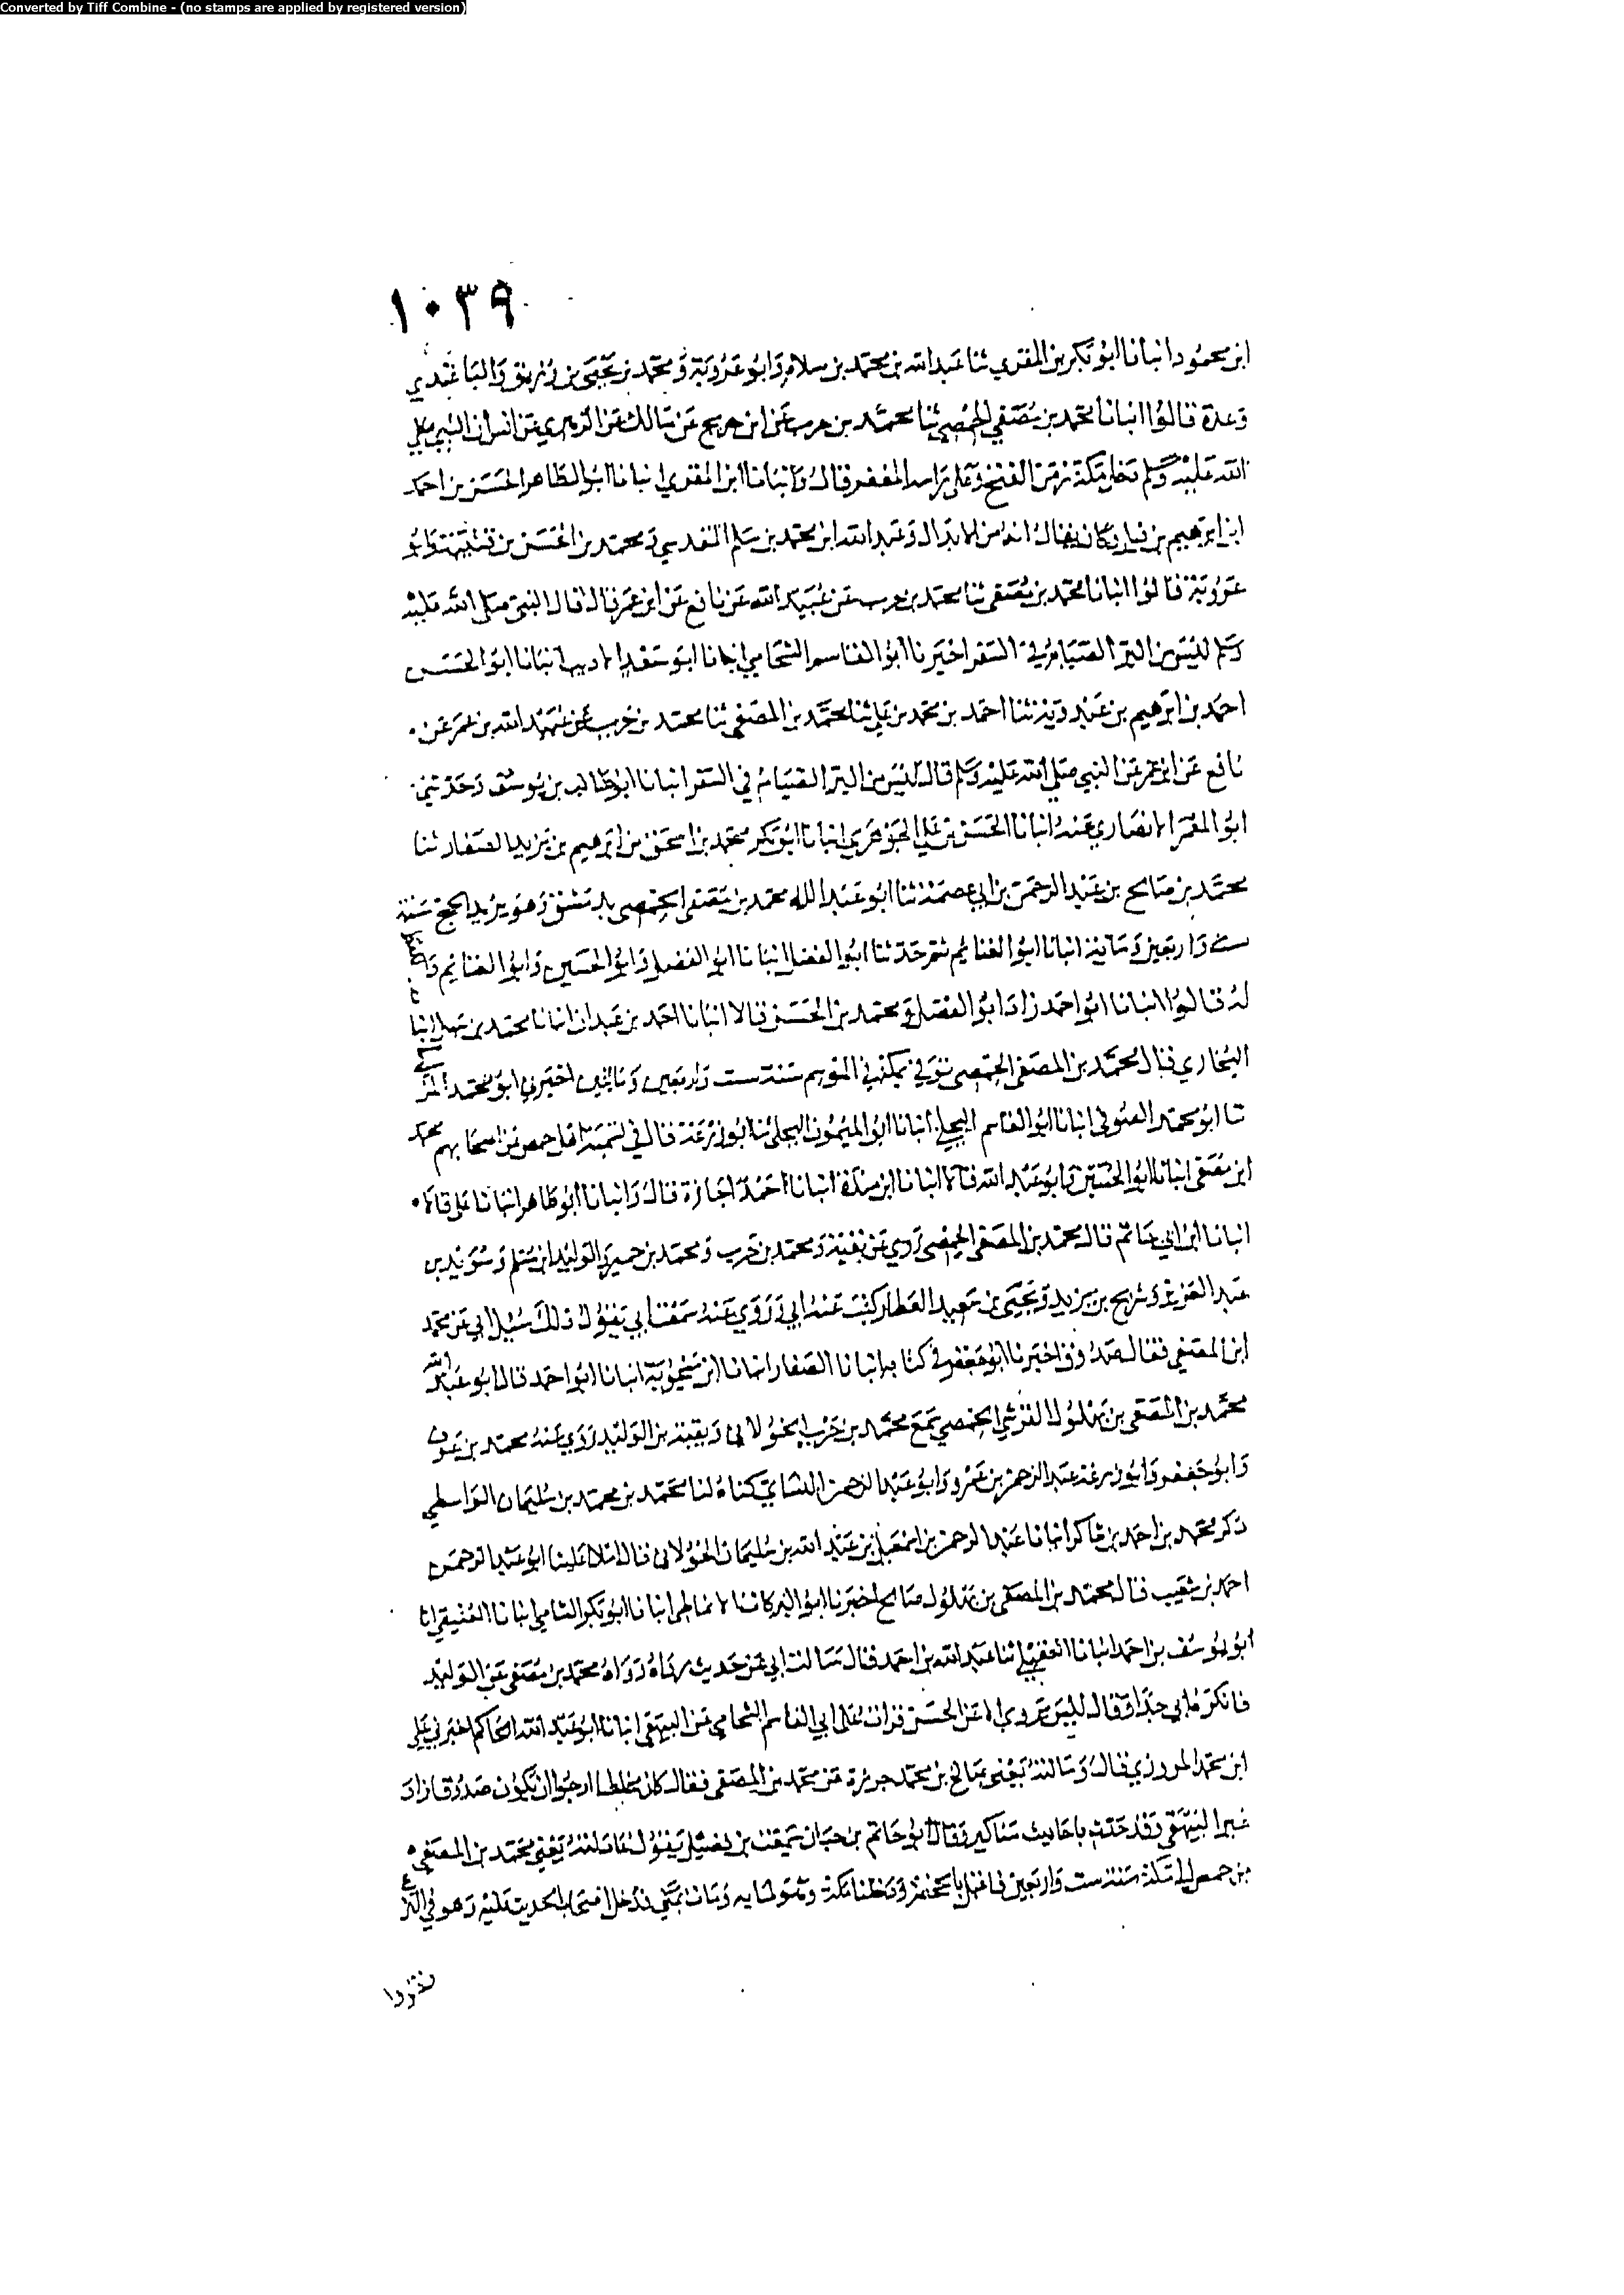 Converted by Tiff Combine - (no stamps are applied by registered version)
١٠٣٩
ابن محمود انبانا ابو بكر بن المقري ثنا عبد الله بن محمد بن سلام وابو عروبة ومحمد بن يحيى بن رزيق والباغندي
وعدة قالوا انبانا محمد بن مصفي الحمصي ثنا محمد بن حرب عن ابن جريج عن مالك عن الزهري عن انس ان النبي صلى
الله عليه وسلم دخل مكة زمن الفتح وعلى راسه المغفر قال وانبانا ابن المقري انبانا ابو الطاهر الحسن بن احمد
ابن ابرهيم بن فيل وكان يقال انه من الابدال وعبد الله ابن محمد بن سلم المقدسي ومحمد بن الحسن بن قتيبة وابو
عروبة قالوا انبانا محمد بن مصفى ثنا محمد بن حرب عن عبيد الله عن نافع عن ابن عمر قال قال النبي صلى الله عليه
وسلم ليس من البر الصيام في السفر اخبرنا ابو القاسم الشحامي انبانا ابو سعد الاديب انبانا ابو الحسن
احمد بن ابرهيم بن عبدويه ثنا احمد بن محمد بن علي ثنا محمد بن المصفى ثنا محمد بن حرب عن عبيد الله بن عمر عن
نافع عن ابن عمر عن النبي صلى الله عليه وسلم قال ليس من البر الصيام في السفر انبانا ابو طالب بن يوسف وحدثني
ابو المعمر الانصاري عنه انبانا الحسن بن علي الجوهري انبانا ابو بكر محمد بن اسحق بن ابرهيم بن يزيد الصفار ثنا
محمد بن صالح بن عبد الرحمن بن ابي عصمة ثنا ابو عبد الله محمد بن مصفى الحمصي بدمشق وهو يريد الحج سنة
ست واربعين ومائتين انبانا ابو الغنائم ثم حدثنا ابو الفضل انبانا ابو الفضل وابو الحسين وابو الغنائم واللفظ
له قالوا انبانا ابو احمد زاد ابو الفضل ومحمد بن الحسن قالا انبانا احمد بن عبدان انبانا محمد بن سهل انبا
البخاري قال محمد بن المصفى الحمصي توفي بمكة في الموسم سنة ست واربعين ومائتين اخبرني ابو محمد المزكي
ثنا ابو محمد الصوفي انبانا ابو القاسم البجلي انبانا ابو الميمون البجلي ثنا ابو زرعة قال في تسمية اهل حمص من اصحابهم محمد
ابن مصفى انبانا ابو الحسين وابو عبد الله قالا انبانا ابن مندة انبانا احمد اجازة قال وانبانا ابو طاهر انبانا علي قالا
انبانا ابن ابي حاتم قال محمد بن المصفى الحمصي روي عن بقية ومحمد بن حرب ومحمد بن حمير والوليد ابن مسلم وسويد بن
عبد العزيز وشريح بن يزيد ويحيى بن سعيد العطار كتب عنه ابي وروي عنه سمعت ابي يقول ذلك سئل ابي عن محمد
ابن المصفى فقال صدوق اخبرنا ابو جعفر في كتابه انبانا الصفار انبانا ابن منجويه انبانا ابو احمد قال ابو عبد الله
محمد بن المصفى بن بهلول القرشي الحمصي سمع محمد بن حرب الخولاني وبقية بن الوليد روي عنه محمد بن عوف
وابو جعفر وابو زرعة عبد الرحمن بن عمرو وابو عبد الرحمن النسائي كناه لنا محمد بن محمد بن سليمان الواسطي
ذكر محمد بن احمد بن شاكر انبانا عبد الرحمن بن اسمعيل بن عبد الله بن سليمان الخولاني قال املا علينا ابو عبد الرحمن
احمد بن شعيب قال محمد بن المصفى بن بهلول صالح اخبرنا ابو البركات الانماطي انبانا ابو بكر الشامي انبانا العتيقي انا
ابو يوسف بن احمد انبانا العقيلي ثنا عبد الله بن احمد قال سالت ابي عن حديث رواه محمد بن مصفى عن الوليد
فانكره ابي جدا وقال ليس يروي الا عن الحسن قرات على ابي القاسم الشحامي عن البيهقي انبانا ابو عبد الله الحاكم اخبرني علي
ابن محمد المروزي قال وسالته يعني صالح بن محمد جزرة عن محمد بن المصفى فقال كان مخلطا ارجو ان يكون صدوقا زاد
غير البيهقي وقد حدث باحاديث مناكير وقال ابو حاتم بن حبان سمعت بن فضيل يقول عادلته يعني محمد بن المصفى
من حمص الى مكة سنة ست واربعين فاعتل بالجحفة ودخلنا مكة وهو لما به ومات بمنى فدخل اصحاب الحديث عليه وهو في النزع